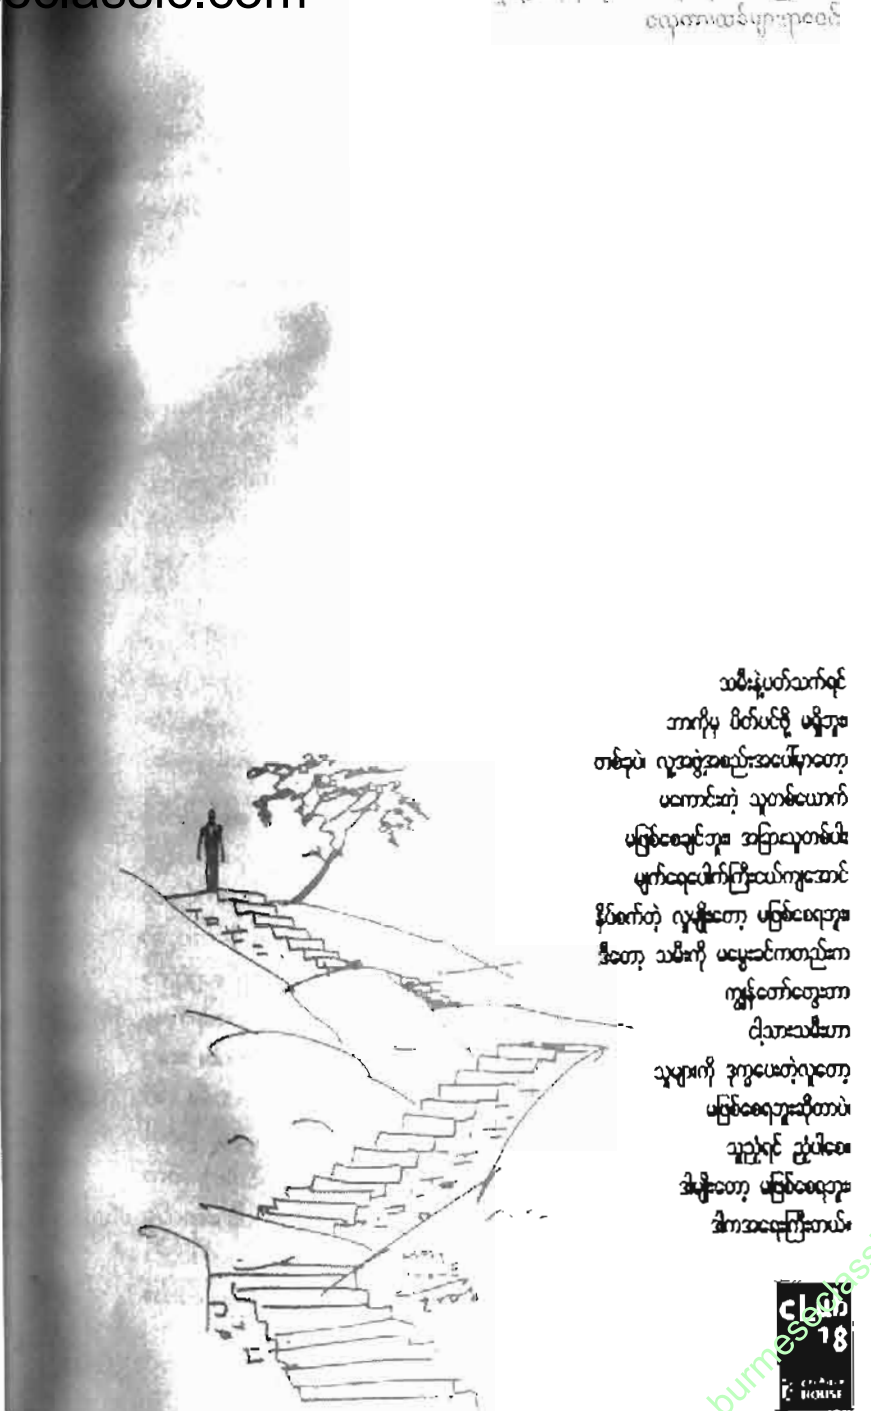 classic.com
သမီးနဲ့ပတ်သက်ရင်
ဘာကိုမှ ပိတ်ပင်ဖို့ မရှိဘူး။
တစ်ခုပဲ၊ လူ့အဖွဲ့အစည်းအပေါ်မှာတော့
မကောင်းတဲ့ သူတစ်ယောက်
မဖြစ်စေချင်ဘူး၊ အခြားသူတစ်ပါး
မျက်ရေပေါက်ကြီးငယ်ကျအောင်
နှိပ်စက်တဲ့ လူမျိုးတော့ မဖြစ်စေရဘူး။
ဒီတော့ သမီးကို မမွေးခင်ကတည်းက
ကျွန်တော်တွေးတာ
ငါ့သားသမီးဟာ
သူများကို ဒုက္ခပေးတဲ့လူတော့
မဖြစ်စေရဘူးဆိုတာပဲ၊
သူညံ့ရင် ညံ့ပါစေ။
ဒါမျိုးတော့ မဖြစ်စေရဘူး။
ဒါကအရေးကြီးတယ်။
18
HOUSE
burmeseclassic